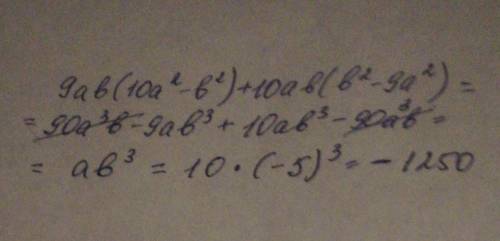 9ab(10a²-b²)+10ab(b²-9a²)=
=90a³b-9ab³+10ab³-90a³b=
=ab³=10·(-5)³=-1250